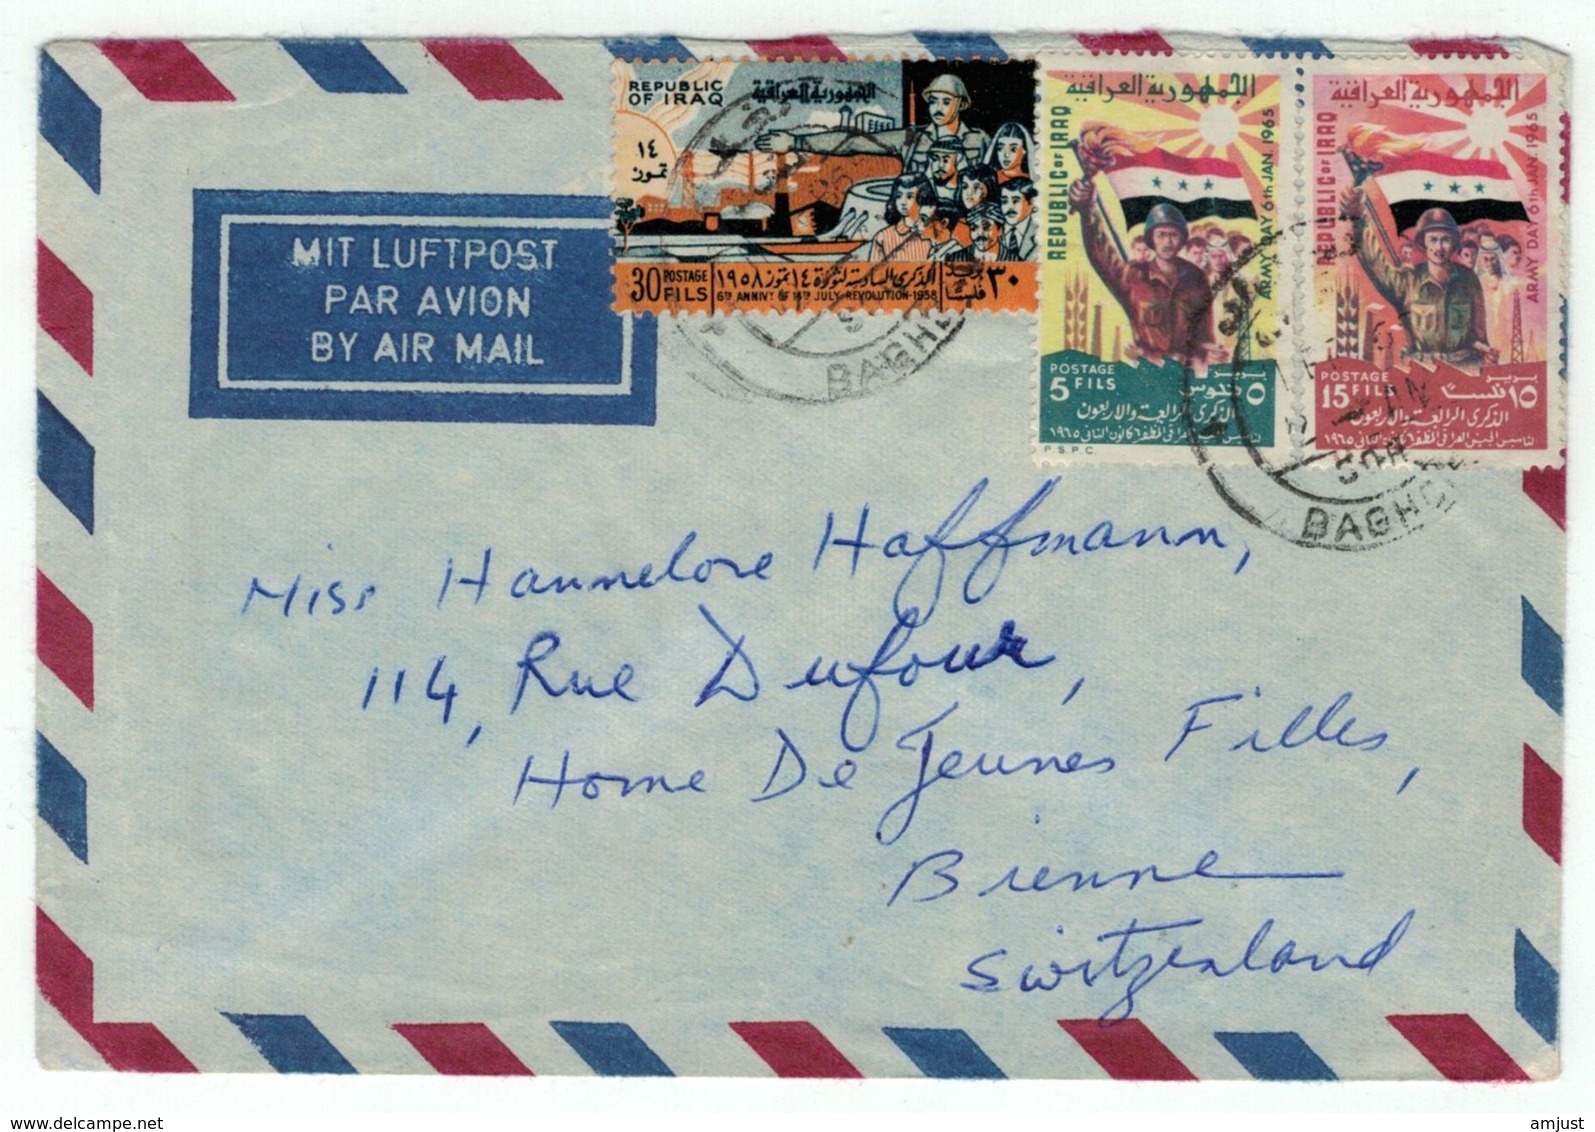 REPUBLIC
OF IRAQ
الجمهورية العراقية
١٤
تموز
30 POSTAGE
FILS
الذكرى السادسة لثورة ١٤ تموز ١٩٥٨
6TH ANNIVY OF 14TH JULY REVOLUTION-1958
بريد
٣٠ فلسا
الجمهورية العراقية
REPUBLIC OF IRAQ
ARMY DAY 6th JAN. 1965
POSTAGE
5 FILS
بريد
٥ فلوس
الذكرى الرابعة والاربعون
لتأسيس الجيش العراقي المظفر ٦ كانون الثاني ١٩٦٥
P.S.P.C.
الجمهورية العراقية
REPUBLIC OF IRAQ
ARMY DAY 6th JAN. 1965
POSTAGE
15 FILS
بريد
١٥ فلسا
الذكرى الرابعة والاربعون
لتأسيس الجيش العراقي المظفر ٦ كانون الثاني ١٩٦٥
MIT LUFTPOST
PAR AVION
BY AIR MAIL
Miss Hannelore Haffmann,
114, Rue Dufour,
Home De Jeunes Filles,
Bienne
Switzerland
www.delcampe.net
amjust